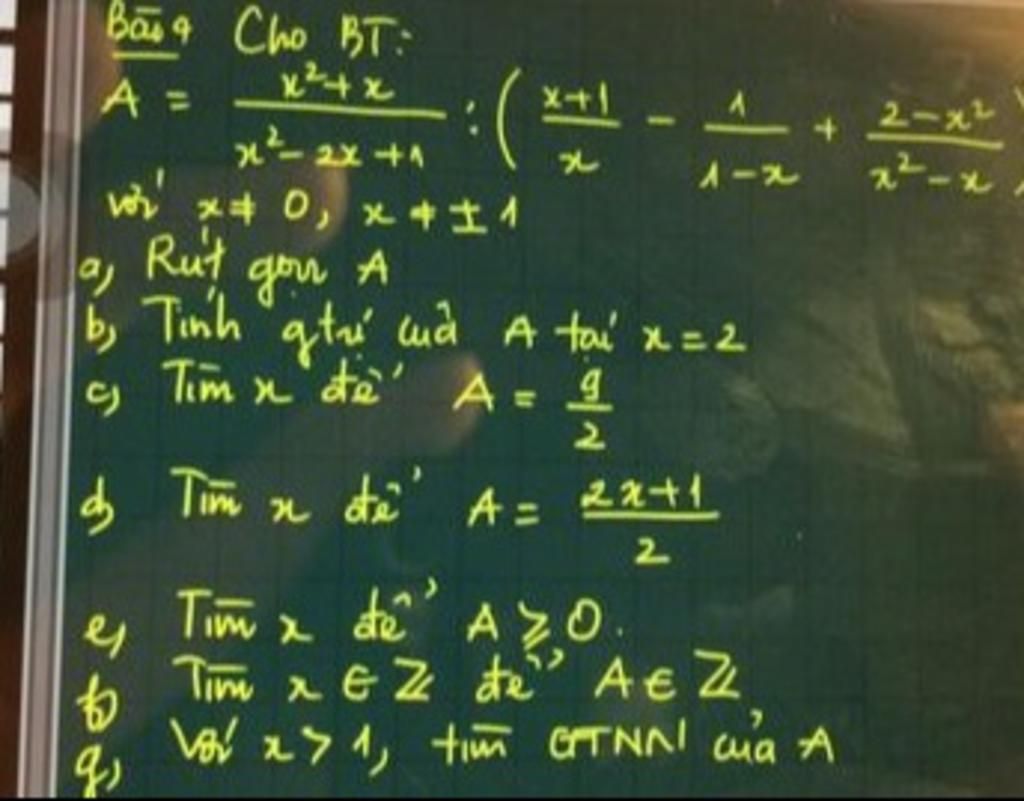 Bài 9 Cho BT:
A = \frac{x²+x}{x²-2x+1} : ( \frac{x+1}{x} - \frac{1}{1-x} + \frac{2-x²}{x²-x} )
với x ≠ 0, x ≠ ± 1
a, Rút gọn A
b, Tính gtrí của A tại x = 2
c, Tìm x để A = \frac{9}{2}
d, Tìm x để A = \frac{2x+1}{2}
e, Tìm x để A ≥ 0.
f, Tìm x ∈ Z để A ∈ Z
g, Với x > 1, tìm GTNN của A